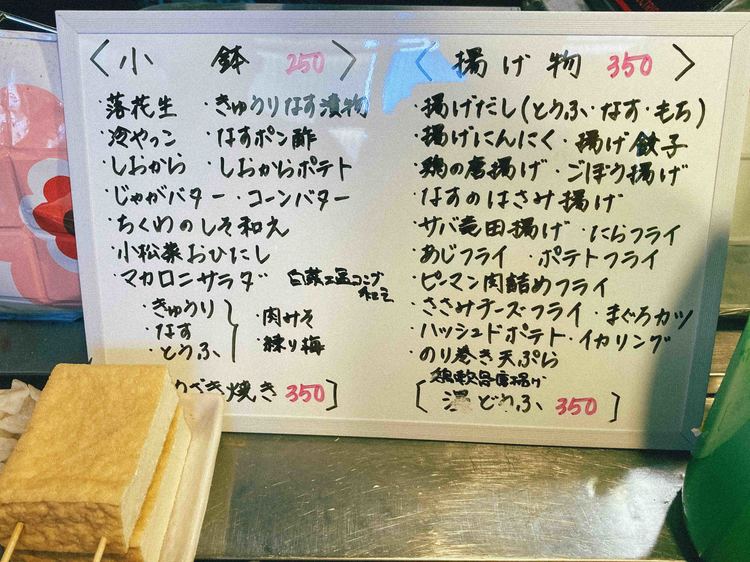 〈小鉢 250〉
・落花生 ・きゅうりなす漬物
・冷やっこ ・なすポン酢
・しおから ・しおからポテト
・じゃがバター ・コーンバター
・ちくわのしそ和え
・小松菜おひたし
・マカロニサラダ
・きゅうり
・なす
・とうふ
・肉みそ
・練り梅
ねぎ焼き 350]
〈揚げ物 350〉
・揚げだし(とうふ・なす・もち)
・揚げにんにく ・揚げ餃子
・鶏の唐揚げ ・ごぼう揚げ
・なすのはさみ揚げ
・サバ竜田揚げ ・にらフライ
・あじフライ ・ポテトフライ
・ピーマン肉詰めフライ
・ささみチーズフライ ・まぐろカツ
・ハッシュドポテト ・イカリング
・のり巻き天ぷら
・鶏軟骨唐揚げ
[湯どうふ 350]